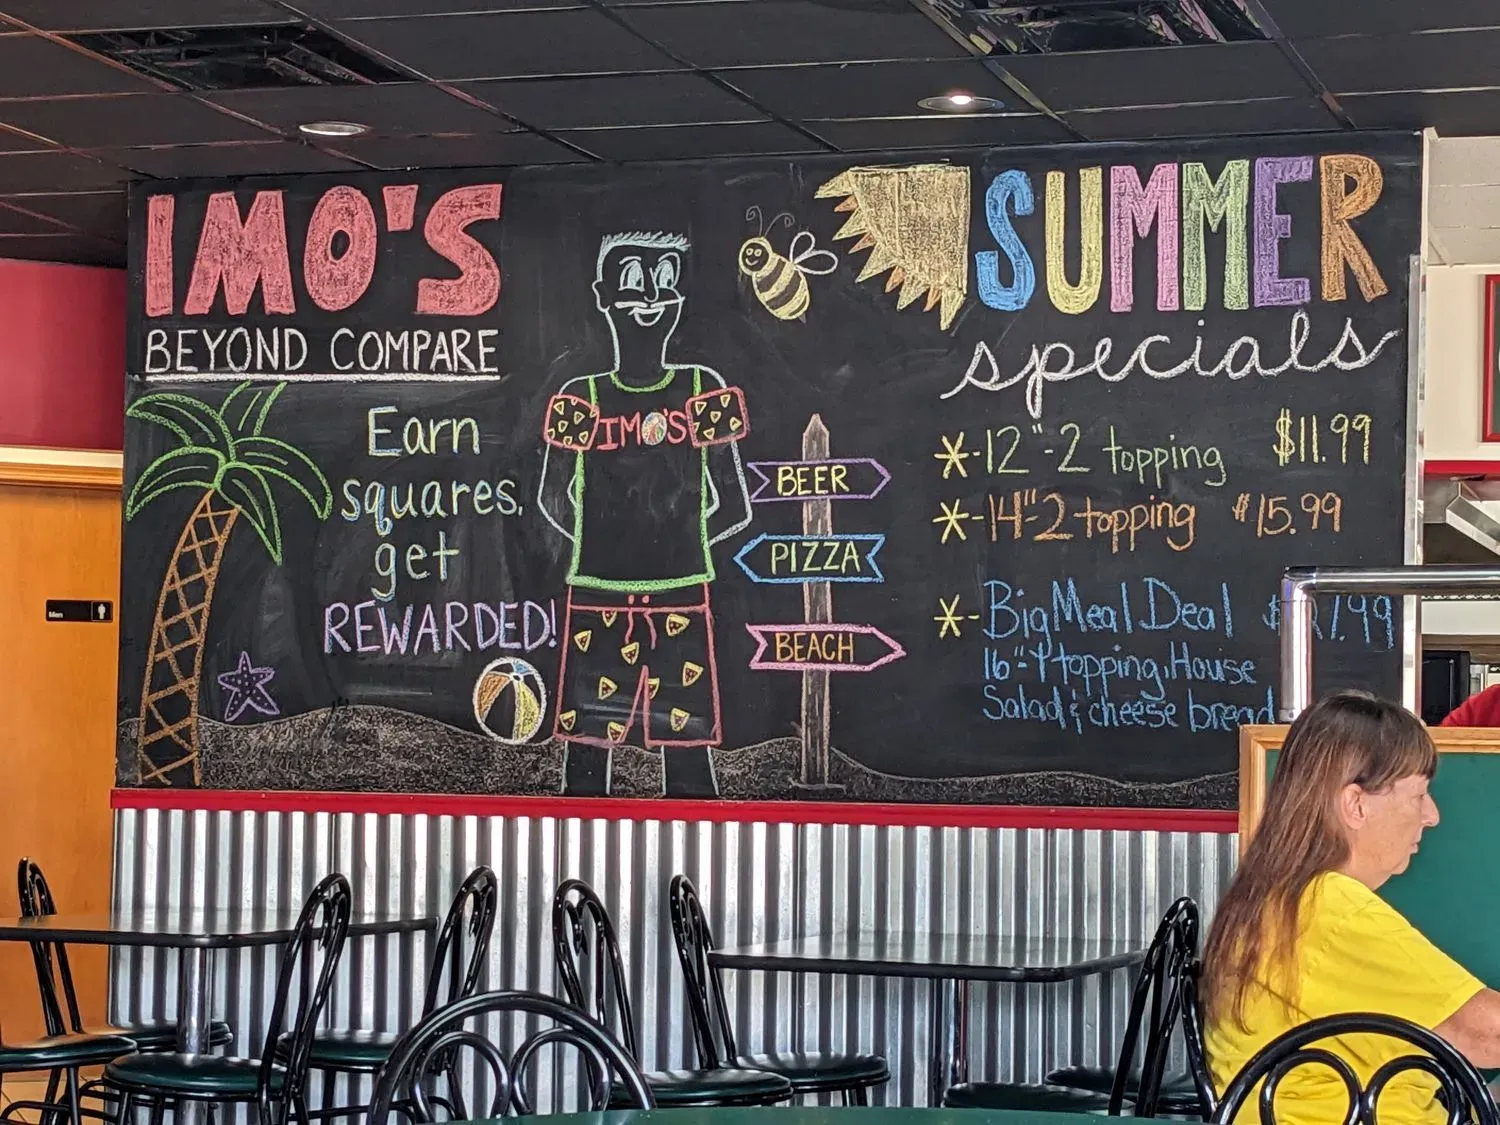 IMO'S
BEYOND COMPARE
Earn
squares,
get
REWARDED!
IMO'S
BEER
PIZZA
BEACH
SUMMER
specials
*-12"-2 topping $11.99
*-14"-2 topping $15.99
*-Big Meal Deal
16"-1 topping, House
Salad & cheese bread
Men